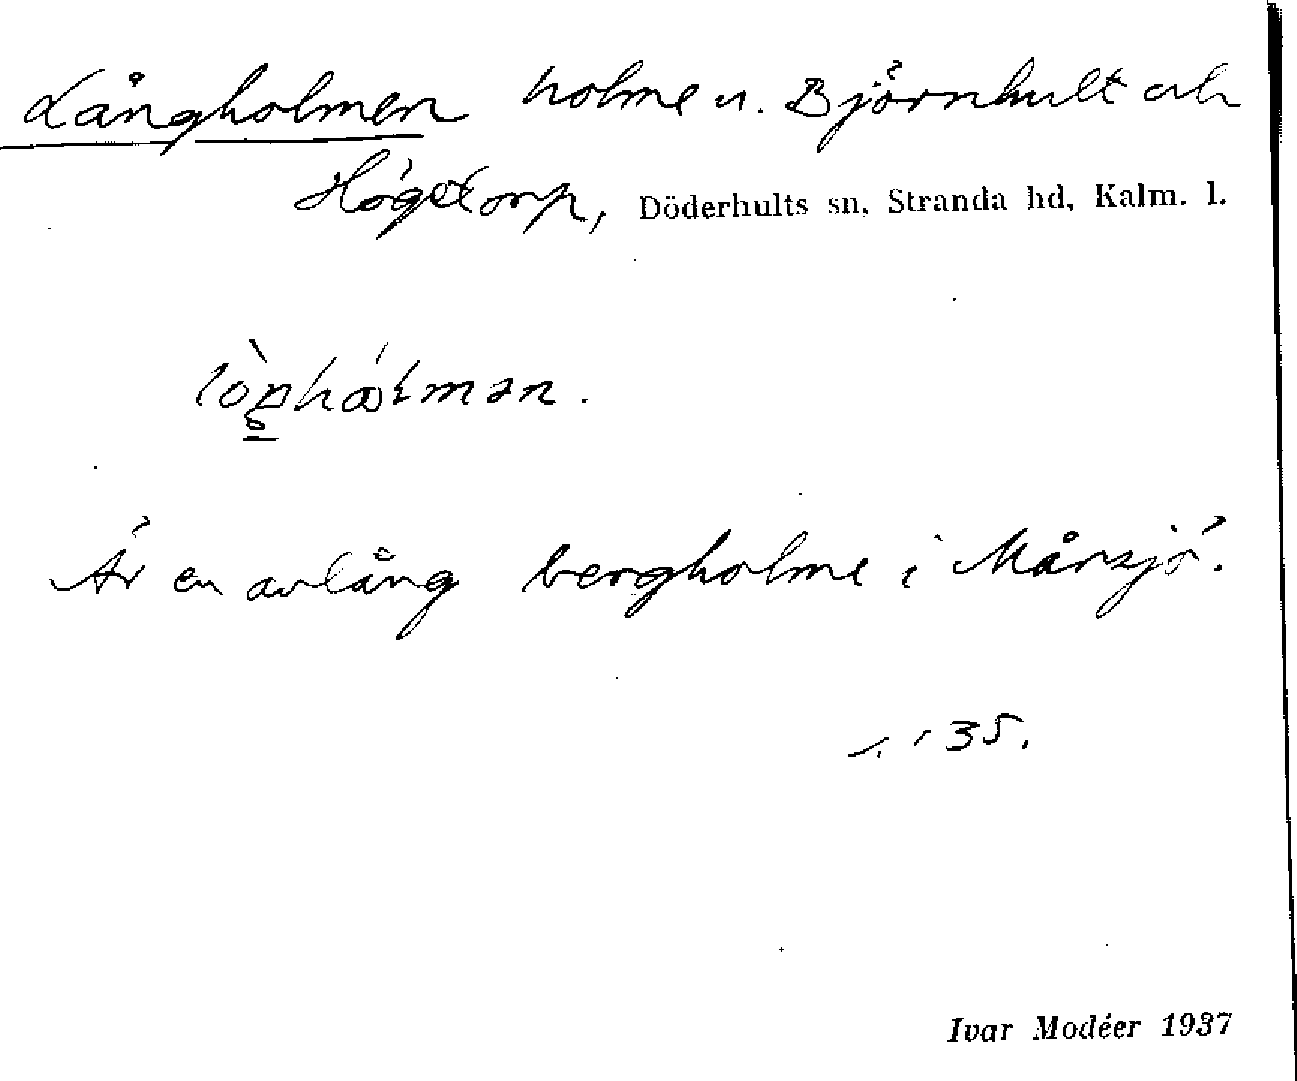 Långholmen holme u. Björnhult och
Högetorp, Döderhults sn, Stranda hd, Kalm. l.
Är en avlång bergholme i Mårsjö.
35.
Ivar Modéer 1937